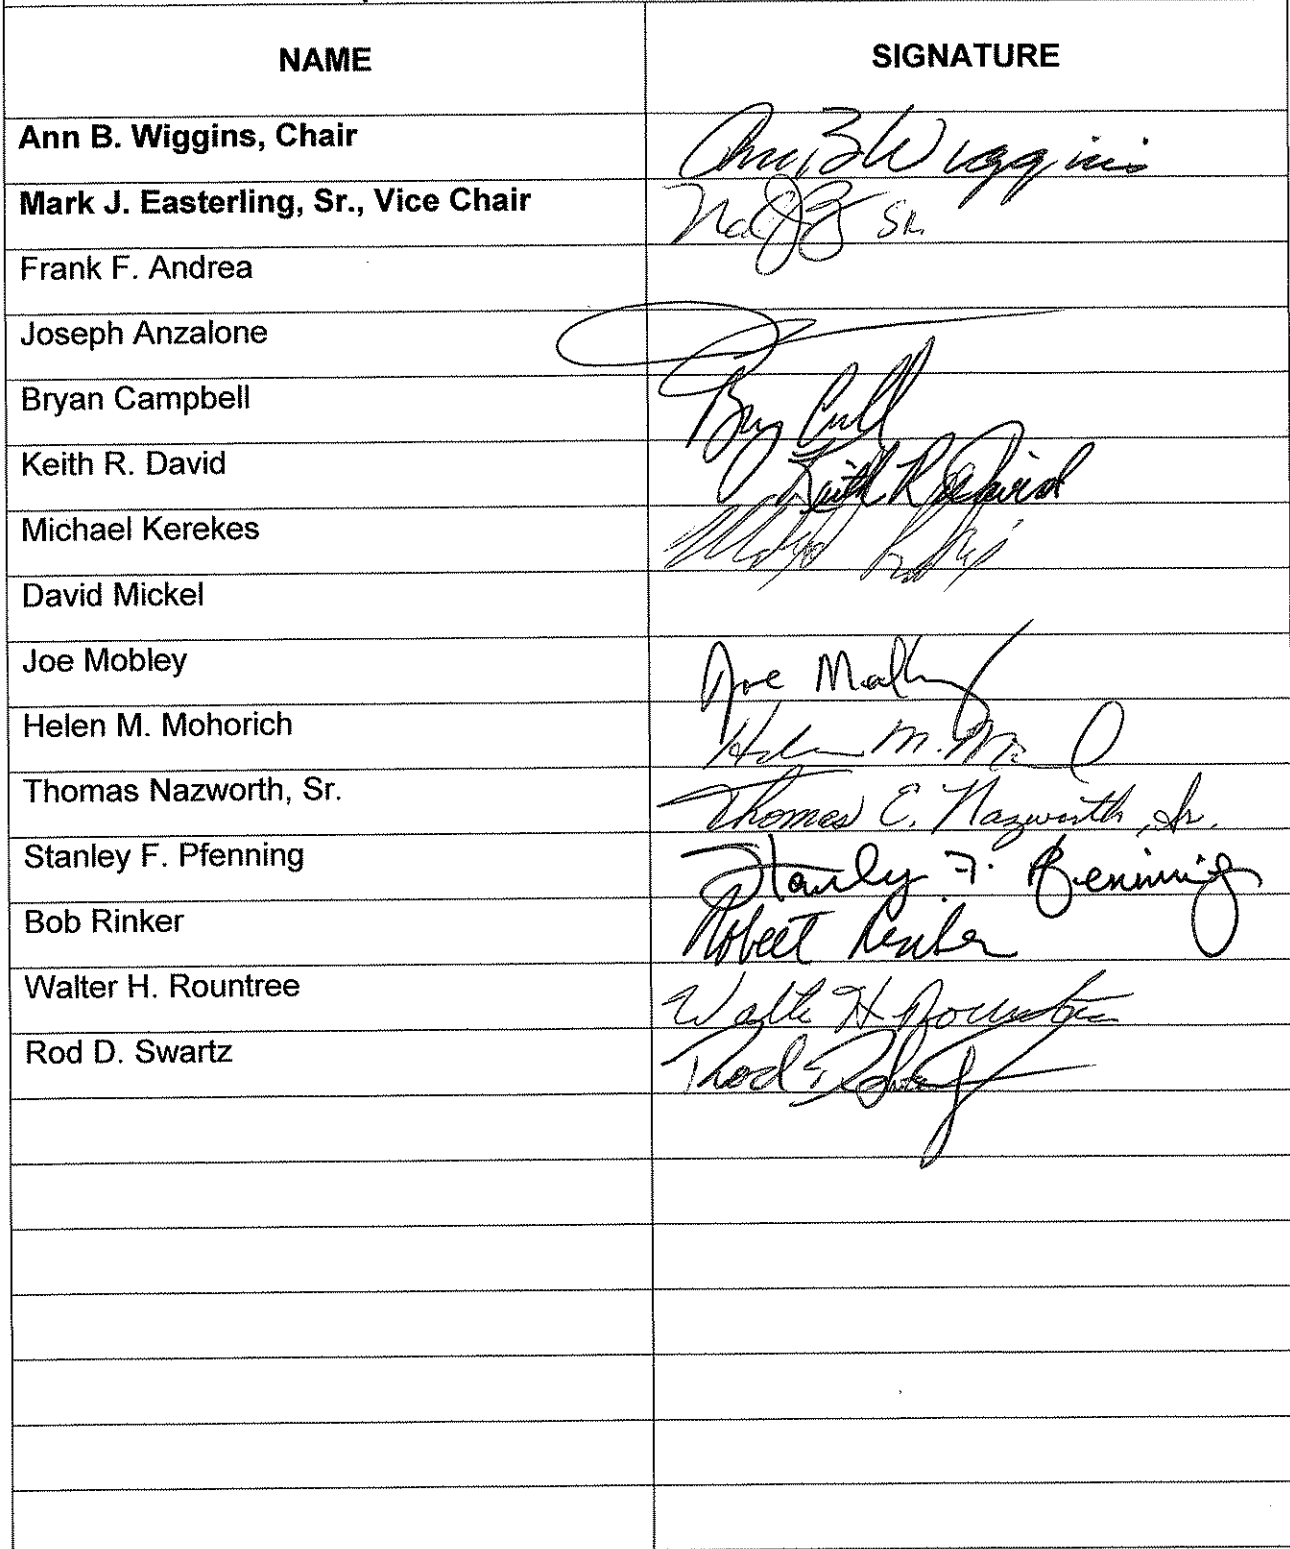 NAME SIGNATURE
Ann B. Wiggins, Chair Ann B Wiggins
Mark J. Easterling, Sr., Vice Chair SR.
Frank F. Andrea
Joseph Anzalone
Bryan Campbell
Keith R. David Keith R David
Michael Kerekes
David Mickel
Joe Mobley Joe
Helen M. Mohorich Helen M.
Thomas Nazworth, Sr. Thomas E. Nazworth, Sr.
Stanley F. Pfenning Stanley F. Pfenning
Bob Rinker Robert Rinker
Walter H. Rountree Walter H Rountree
Rod D. Swartz Rod D